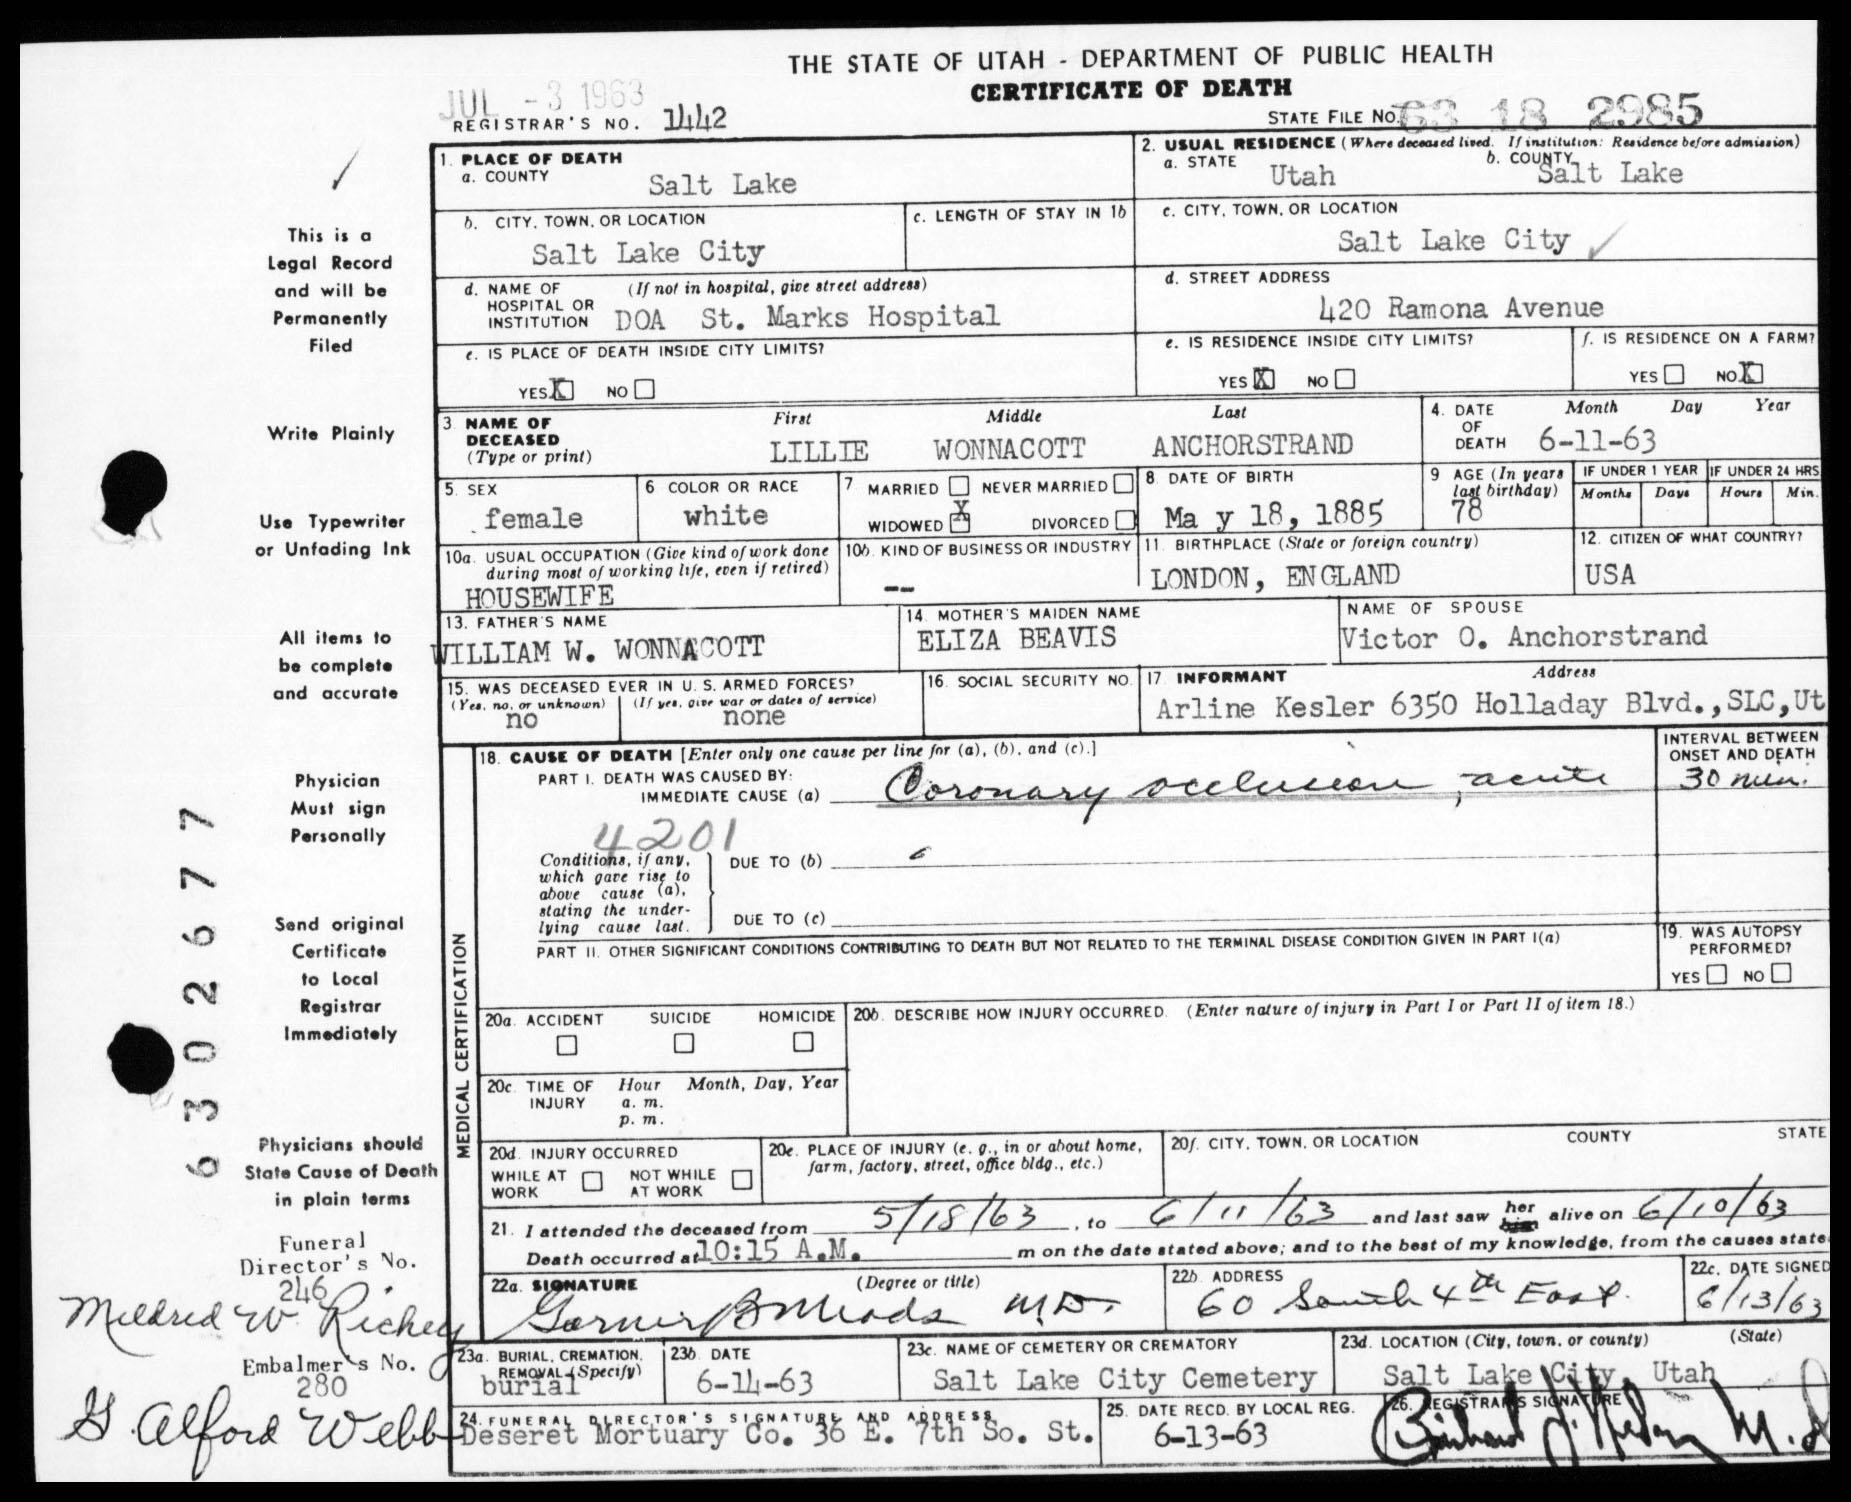 THE STATE OF UTAH - DEPARTMENT OF PUBLIC HEALTH
CERTIFICATE OF DEATH
JUL - 3 1963
REGISTRAR'S NO. 1442
STATE FILE NO. 63 18 2985
1. PLACE OF DEATH
a. COUNTY
Salt Lake
2. USUAL RESIDENCE (Where deceased lived. If institution: Residence before admission)
a. STATE
Utah
b. COUNTY
Salt Lake
b. CITY, TOWN, OR LOCATION
Salt Lake City
c. LENGTH OF STAY IN 1b
c. CITY, TOWN, OR LOCATION
Salt Lake City
d. NAME OF (If not in hospital, give street address)
HOSPITAL OR
INSTITUTION DOA St. Marks Hospital
d. STREET ADDRESS
420 Ramona Avenue
e. IS PLACE OF DEATH INSIDE CITY LIMITS?
YES X NO
e. IS RESIDENCE INSIDE CITY LIMITS?
YES X NO
f. IS RESIDENCE ON A FARM?
YES NO X
3 NAME OF
DECEASED
(Type or print)
First Middle Last
LILLIE WONNACOTT ANCHORSTRAND
4. DATE
OF
DEATH
Month Day Year
6-11-63
5. SEX
female
6 COLOR OR RACE
white
7 MARRIED NEVER MARRIED
WIDOWED X DIVORCED
8. DATE OF BIRTH
Ma y 18, 1885
9 AGE (In years
last birthday)
78
IF UNDER 1 YEAR
Months Days
IF UNDER 24 HRS
Hours Min.
10a. USUAL OCCUPATION (Give kind of work done
during most of working life, even if retired)
HOUSEWIFE
10b. KIND OF BUSINESS OR INDUSTRY
--
11. BIRTHPLACE (State or foreign country)
LONDON, ENGLAND
12. CITIZEN OF WHAT COUNTRY?
USA
13. FATHER'S NAME
WILLIAM W. WONNACOTT
14. MOTHER'S MAIDEN NAME
ELIZA BEAVIS
NAME OF SPOUSE
Victor O. Anchorstrand
15. WAS DECEASED EVER IN U. S. ARMED FORCES?
(Yes, no, or unknown) (If yes, give war or dates of service)
no none
16. SOCIAL SECURITY NO.
17 INFORMANT Address
Arline Kesler 6350 Holladay Blvd.,SLC,Ut
MEDICAL CERTIFICATION
18. CAUSE OF DEATH [Enter only one cause per line for (a), (b), and (c).]
PART I. DEATH WAS CAUSED BY:
IMMEDIATE CAUSE (a) Coronary occlusion, acute
INTERVAL BETWEEN
ONSET AND DEATH
30 min.
4201
Conditions, if any,
which gave rise to
above cause (a),
stating the under-
lying cause last.
DUE TO (b)
DUE TO (c)
PART II. OTHER SIGNIFICANT CONDITIONS CONTRIBUTING TO DEATH BUT NOT RELATED TO THE TERMINAL DISEASE CONDITION GIVEN IN PART I(a)
19. WAS AUTOPSY
PERFORMED?
YES NO
20a. ACCIDENT SUICIDE HOMICIDE
20b. DESCRIBE HOW INJURY OCCURRED. (Enter nature of injury in Part I or Part II of item 18.)
20c. TIME OF Hour Month, Day, Year
INJURY a. m.
p. m.
20d. INJURY OCCURRED
WHILE AT NOT WHILE
WORK AT WORK
20e. PLACE OF INJURY (e. g., in or about home,
farm, factory, street, office bldg., etc.)
20f. CITY, TOWN, OR LOCATION COUNTY STATE
21. I attended the deceased from 5/18/63, to 6/11/63 and last saw her him alive on 6/10/63
Death occurred at 10:15 A.M. m on the date stated above; and to the best of my knowledge, from the causes state
22a. SIGNATURE (Degree or title)
Garner B Meads M.D.
22b. ADDRESS
60 South 4th East.
22c. DATE SIGNED
6/13/63
23a. BURIAL, CREMATION,
REMOVAL (Specify)
burial
23b. DATE
6-14-63
23c. NAME OF CEMETERY OR CREMATORY
Salt Lake City Cemetery
23d. LOCATION (City, town, or county) (State)
Salt Lake City, Utah
24. FUNERAL DIRECTOR'S SIGNATURE AND ADDRESS
Deseret Mortuary Co. 36 E. 7th So. St.
25. DATE RECD. BY LOCAL REG.
6-13-63
26. REGISTRAR'S SIGNATURE
This is a
Legal Record
and will be
Permanently
Filed
Write Plainly
Use Typewriter
or Unfading Ink
All items to
be complete
and accurate
Physician
Must sign
Personally
Send original
Certificate
to Local
Registrar
Immediately
Physicians should
State Cause of Death
in plain terms
Funeral
Director's No.
246
Mildred W. Richey
Embalmer's No.
280
G. Alford Webb
6302677